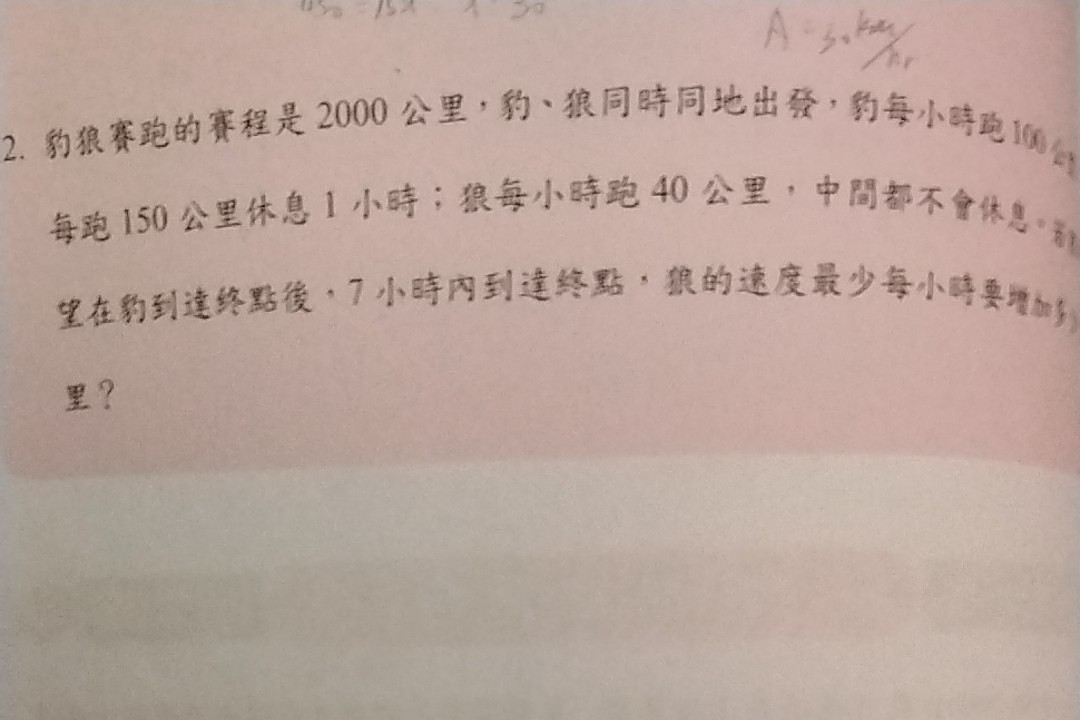 A = 50 km/hr
2. 豹狼賽跑的賽程是 2000 公里，豹、狼同時同地出發，豹每小時跑 100 公
每跑 150 公里休息 1 小時；狼每小時跑 40 公里，中間都不會休息。
望在豹到達終點後，7 小時內到達終點，狼的速度最少每小時要增加多
里？